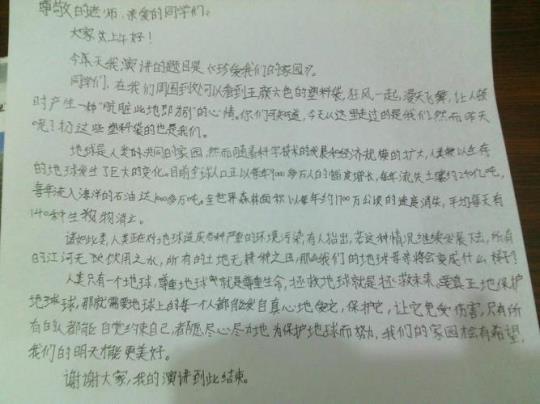 尊敬的老师,亲爱的同学们:
大家上午好!
今天我演讲的题目是《珍爱我们的家园》。
同学们,在我们周围到处可以看到五颜六色的塑料袋,狂风一起,漫天飞舞,让人顿
时产生一种"肮脏此地即为"的心情。你们可知道,今天从这里走过的是我们,然而昨天
呢?扔这些塑料袋的也是我们。
地球是人类的共同的家园,然而随着科学技术的发展和经济规模的扩大,人类赖以生存
的地球发生了巨大的变化。目前全球人口正以每年900多万人的幅度增长,每年流失土壤约240亿吨,
每年流入海洋的石油达1000多万吨。全世界森林面积以每年约1700万公顷的速度消失,平均每天有
140种生物消亡。
诸如此类,人类正在对地球造成各种严重的环境污染,有人指出,若这种情况继续发展下去,所有
的江河无可饮用之水,所有的土地无耕种之田,那么我们的地球母亲将会变成什么样子?
人类只有一个地球,尊重地球就是尊重生命,拯救地球就是拯救未来,要真正地保护
地球,那就需要地球上的每一个人都能发自真心地爱它,保护它,让它免受伤害,只有所
有的人都能自觉约束自己,都愿尽心尽力地为保护地球而努力,我们的家园才会有希望,
我们的明天才能更美好。
谢谢大家,我的演讲到此结束。